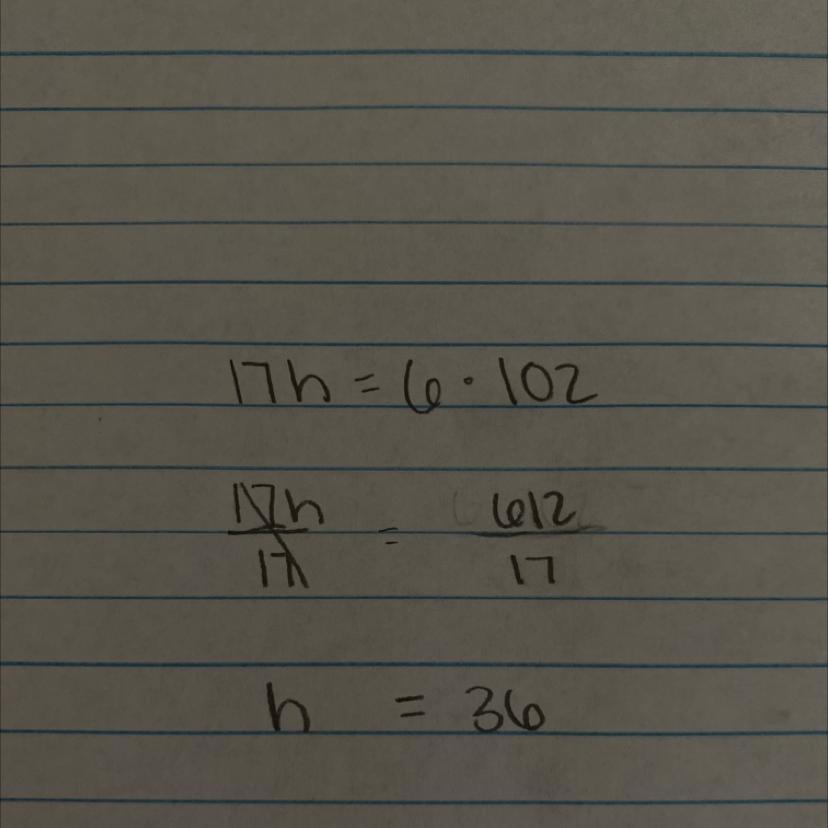 17h = 6 · 102
17h/17 = 612/17
h = 36